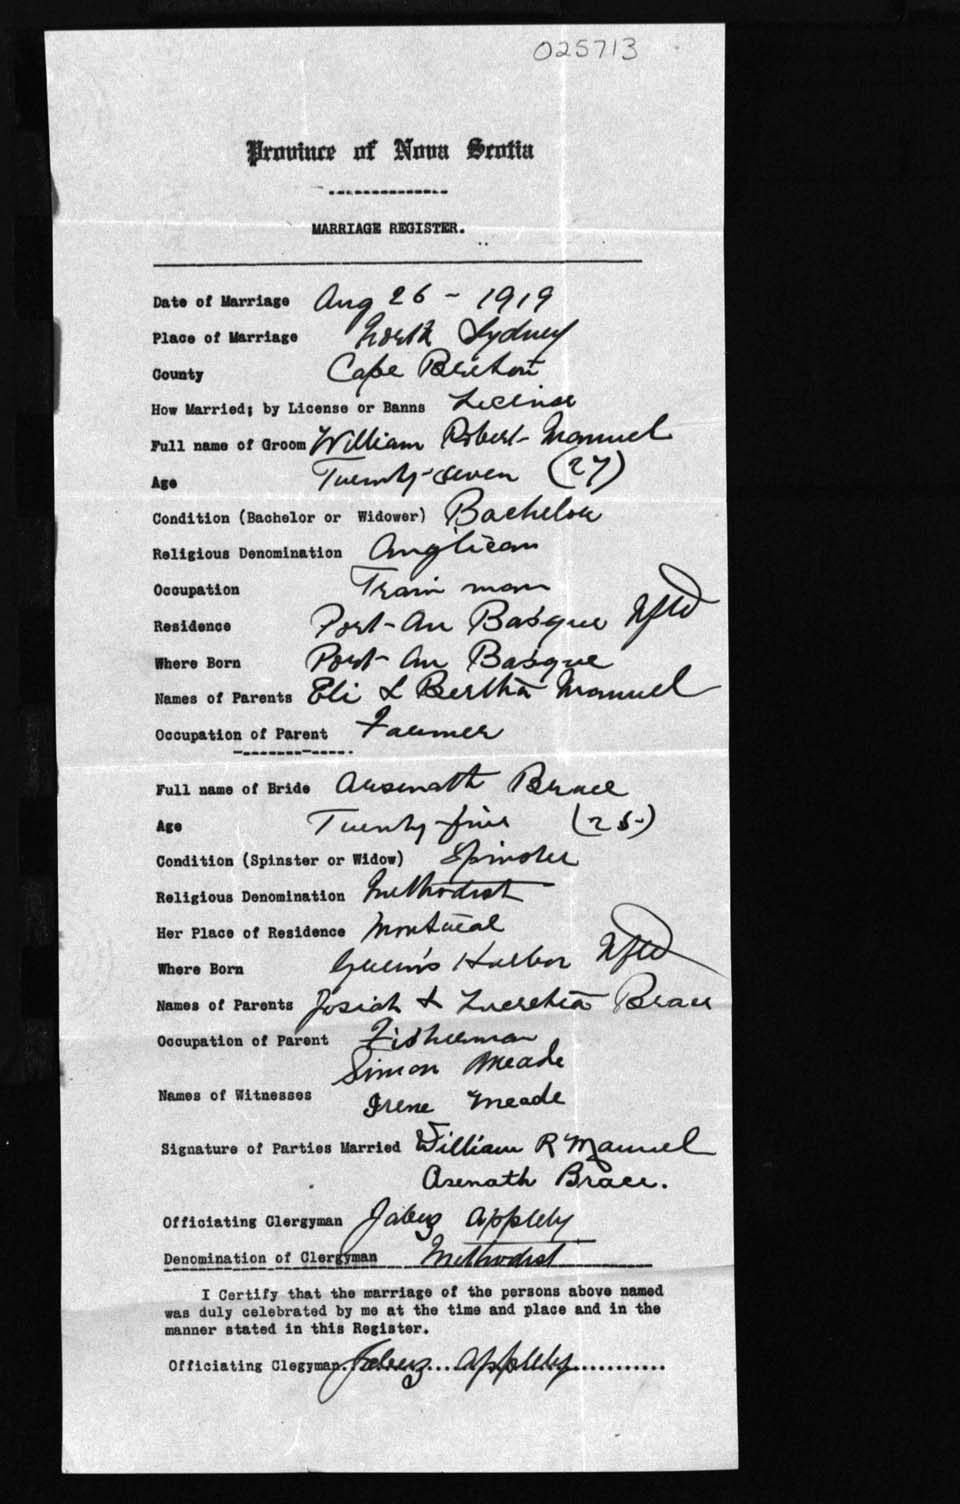 025713
Province of Nova Scotia
MARRIAGE REGISTER.
Date of Marriage Aug 26 - 1919
Place of Marriage North Sydney
County Cape Breton
How Married; by License or Banns License
Full name of Groom William Robert Manuel
Age Twenty-seven (27)
Condition (Bachelor or Widower) Bachelor
Religious Denomination Anglican
Occupation Train man
Residence Port-Au Basque Nfld
Where Born Port-Au Basque
Names of Parents Eli & Bertha Manuel
Occupation of Parent Farmer
Full name of Bride Arsenath Brace
Age Twenty-five (25)
Condition (Spinster or Widow) Spinster
Religious Denomination Methodist
Her Place of Residence Montreal
Where Born Green's Harbor Nfld
Names of Parents Josiah & Lucretia Brace
Occupation of Parent Fisherman
Simon Meade
Names of Witnesses
Irene Meade
Signature of Parties Married William R Manuel
Asenath Brace.
Officiating Clergyman Jabez Appleby
Denomination of Clergyman Methodist
I Certify that the marriage of the persons above named
was duly celebrated by me at the time and place and in the
manner stated in this Register.
Officiating Clegyman. Jabez Appleby